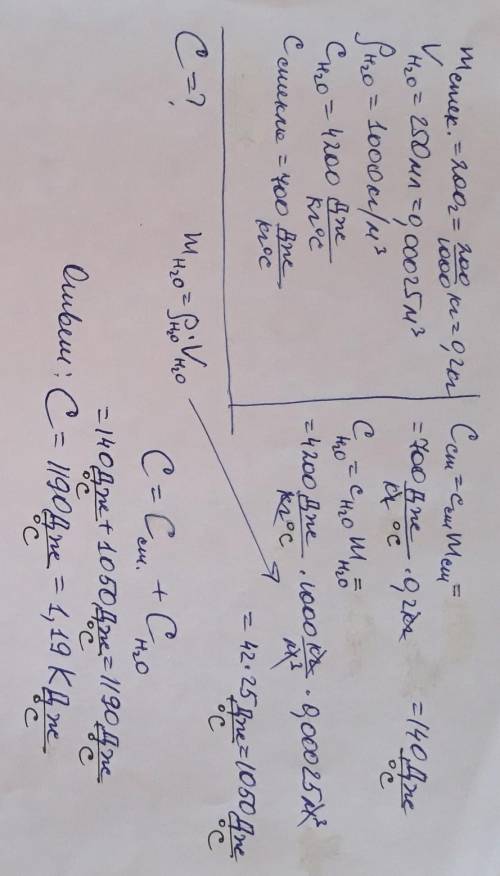 mстек. = 200г = 200/1000 кг = 0,2кг
V H₂O = 250мл = 0,00025м³
ρ H₂O = 1000кг/м³
C H₂O = 4200 Дж/кг°C
C стекло = 700 Дж/кг°C
C = ?
m H₂O = ρ H₂O · V H₂O
C ст = c ст m ст =
= 700 Дж/кг °C · 0,2кг = 140 Дж/°C
C H₂O = c H₂O m H₂O =
= 4200 Дж/кг°C · 1000 кг/м³ · 0,00025м³
= 42·25 Дж/°C = 1050 Дж/°C
C = C ст. + C H₂O
= 140 Дж/°C + 1050 Дж/°C = 1190 Дж/°C
Ответ: C = 1190 Дж/°C = 1,19 КДж/°C